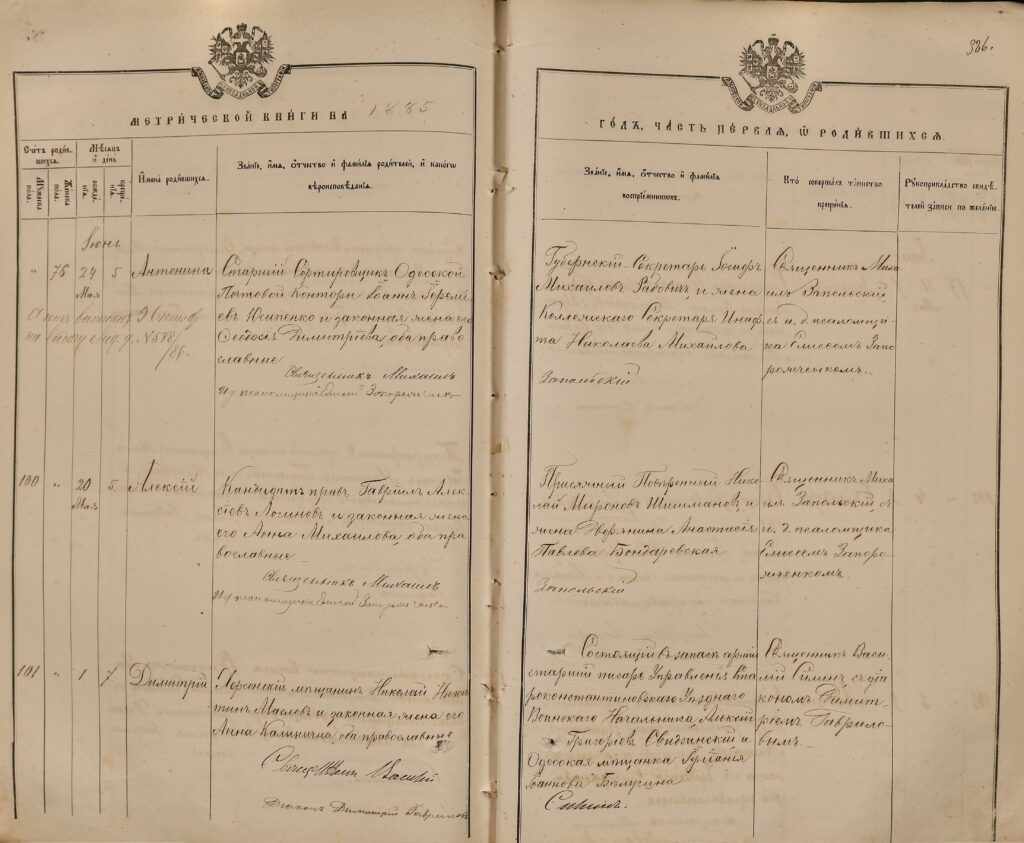 336.
МЕТРИ́ЧЕСКОЙ КНИ́ГИ НА 1885
ГО́ДЪ, ЧА́СТЬ ПЕ́РВАЯ, Ѡ҆ РОДИ́ВШИХСЯ.
Счетъ роди́в-
шихся.
Мѣсяцъ
и҆ де́нь
Мꙋжеска
пола.
Женска
пола.
рожде-
нїѧ.
креще-
нїѧ.
И҆мена роди́вшихся.
Зва́нїе, и҆́мѧ, ѻ҆́тчество и҆ фами́лїѧ роди́телей, и҆ како́гѡ
вѣроисповѣ́данїѧ.
Зва́нїе, и҆́мѧ, ѻ҆́тчество и҆ фами́лїѧ
воспрїе́мникѡвъ.
Кто̀ соверша́лъ та́инство
креще́нїѧ.
Рꙋкоприкла́дство свидѣ́-
телей за́писи по жела́нїю.
Іюнь
" 76 24 5 Антонина
Мая
Старшій Сортировщикъ Одесской
Почтовой Конторы Іоаннъ Іеремі
евъ Юсипенко и законная жена его
Ѳеодосія Димитріева, оба право
славные
№ 548/
86.
Священникъ Михаилъ
Губернскій Секретарь Іосифъ
Михайловъ Радовичъ и жена
Коллежскаго Секретаря
Николаева Михайлова
Запольскій
Священникъ Миха
илъ Запольскій,
съ и. д. псаломщи
ка Елисеемъ Запо
рожченкомъ.
100 " 20 5 Алексій
Мая
Кандидатъ правъ Гавріилъ Алек
сіевъ Логиновъ и законная жена
его Анна Михайлова, оба пра
вославные
Священникъ Михаилъ
Присяжный Повѣренный Нико
лай Мироновъ Шишмановъ и
жена дворянина Анастасія
Павлова Бондаровская
Запольскій
Священникъ Миха
илъ Запольскій, съ
и. д. псаломщика
Елисеемъ Запоро
жченкомъ.
101 " 1 7 Димитрій
Херсонскій мѣщанинъ Николай Ники
тинъ Масловъ и законная жена его
Анна Калинична, оба православные
Священникъ Василій
Діаконъ Димитрій Гавриловъ
Состоящій въ запасѣ арміи
старшій писарь Управленія Ста
роконстантиновскаго Уѣзднаго
Воинскаго Начальника Алексій
Григоріевъ Свидзинскій и
Одесская мѣщанка Іуліанія
Іоаннова
Священникъ Васи
лій съ діа
кономъ Димит
ріемъ Гаврило
вымъ.